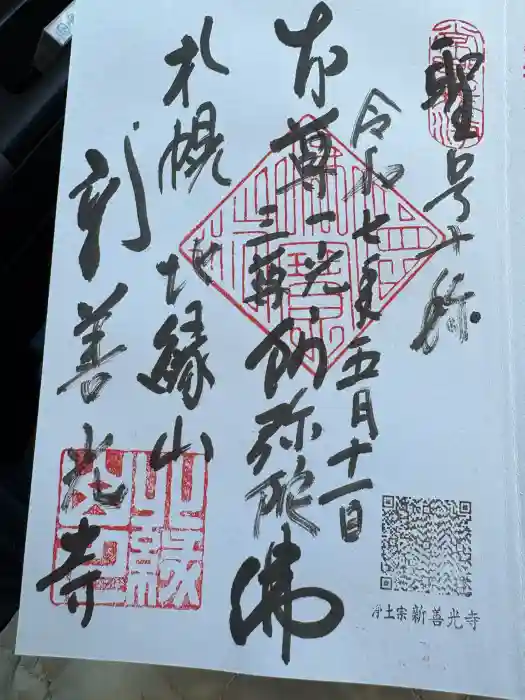 聖号十称
令和七年五月十一日
本尊一光三尊阿弥陀佛
札幌北縁山
新善光寺
北縁
浄土宗新善光寺